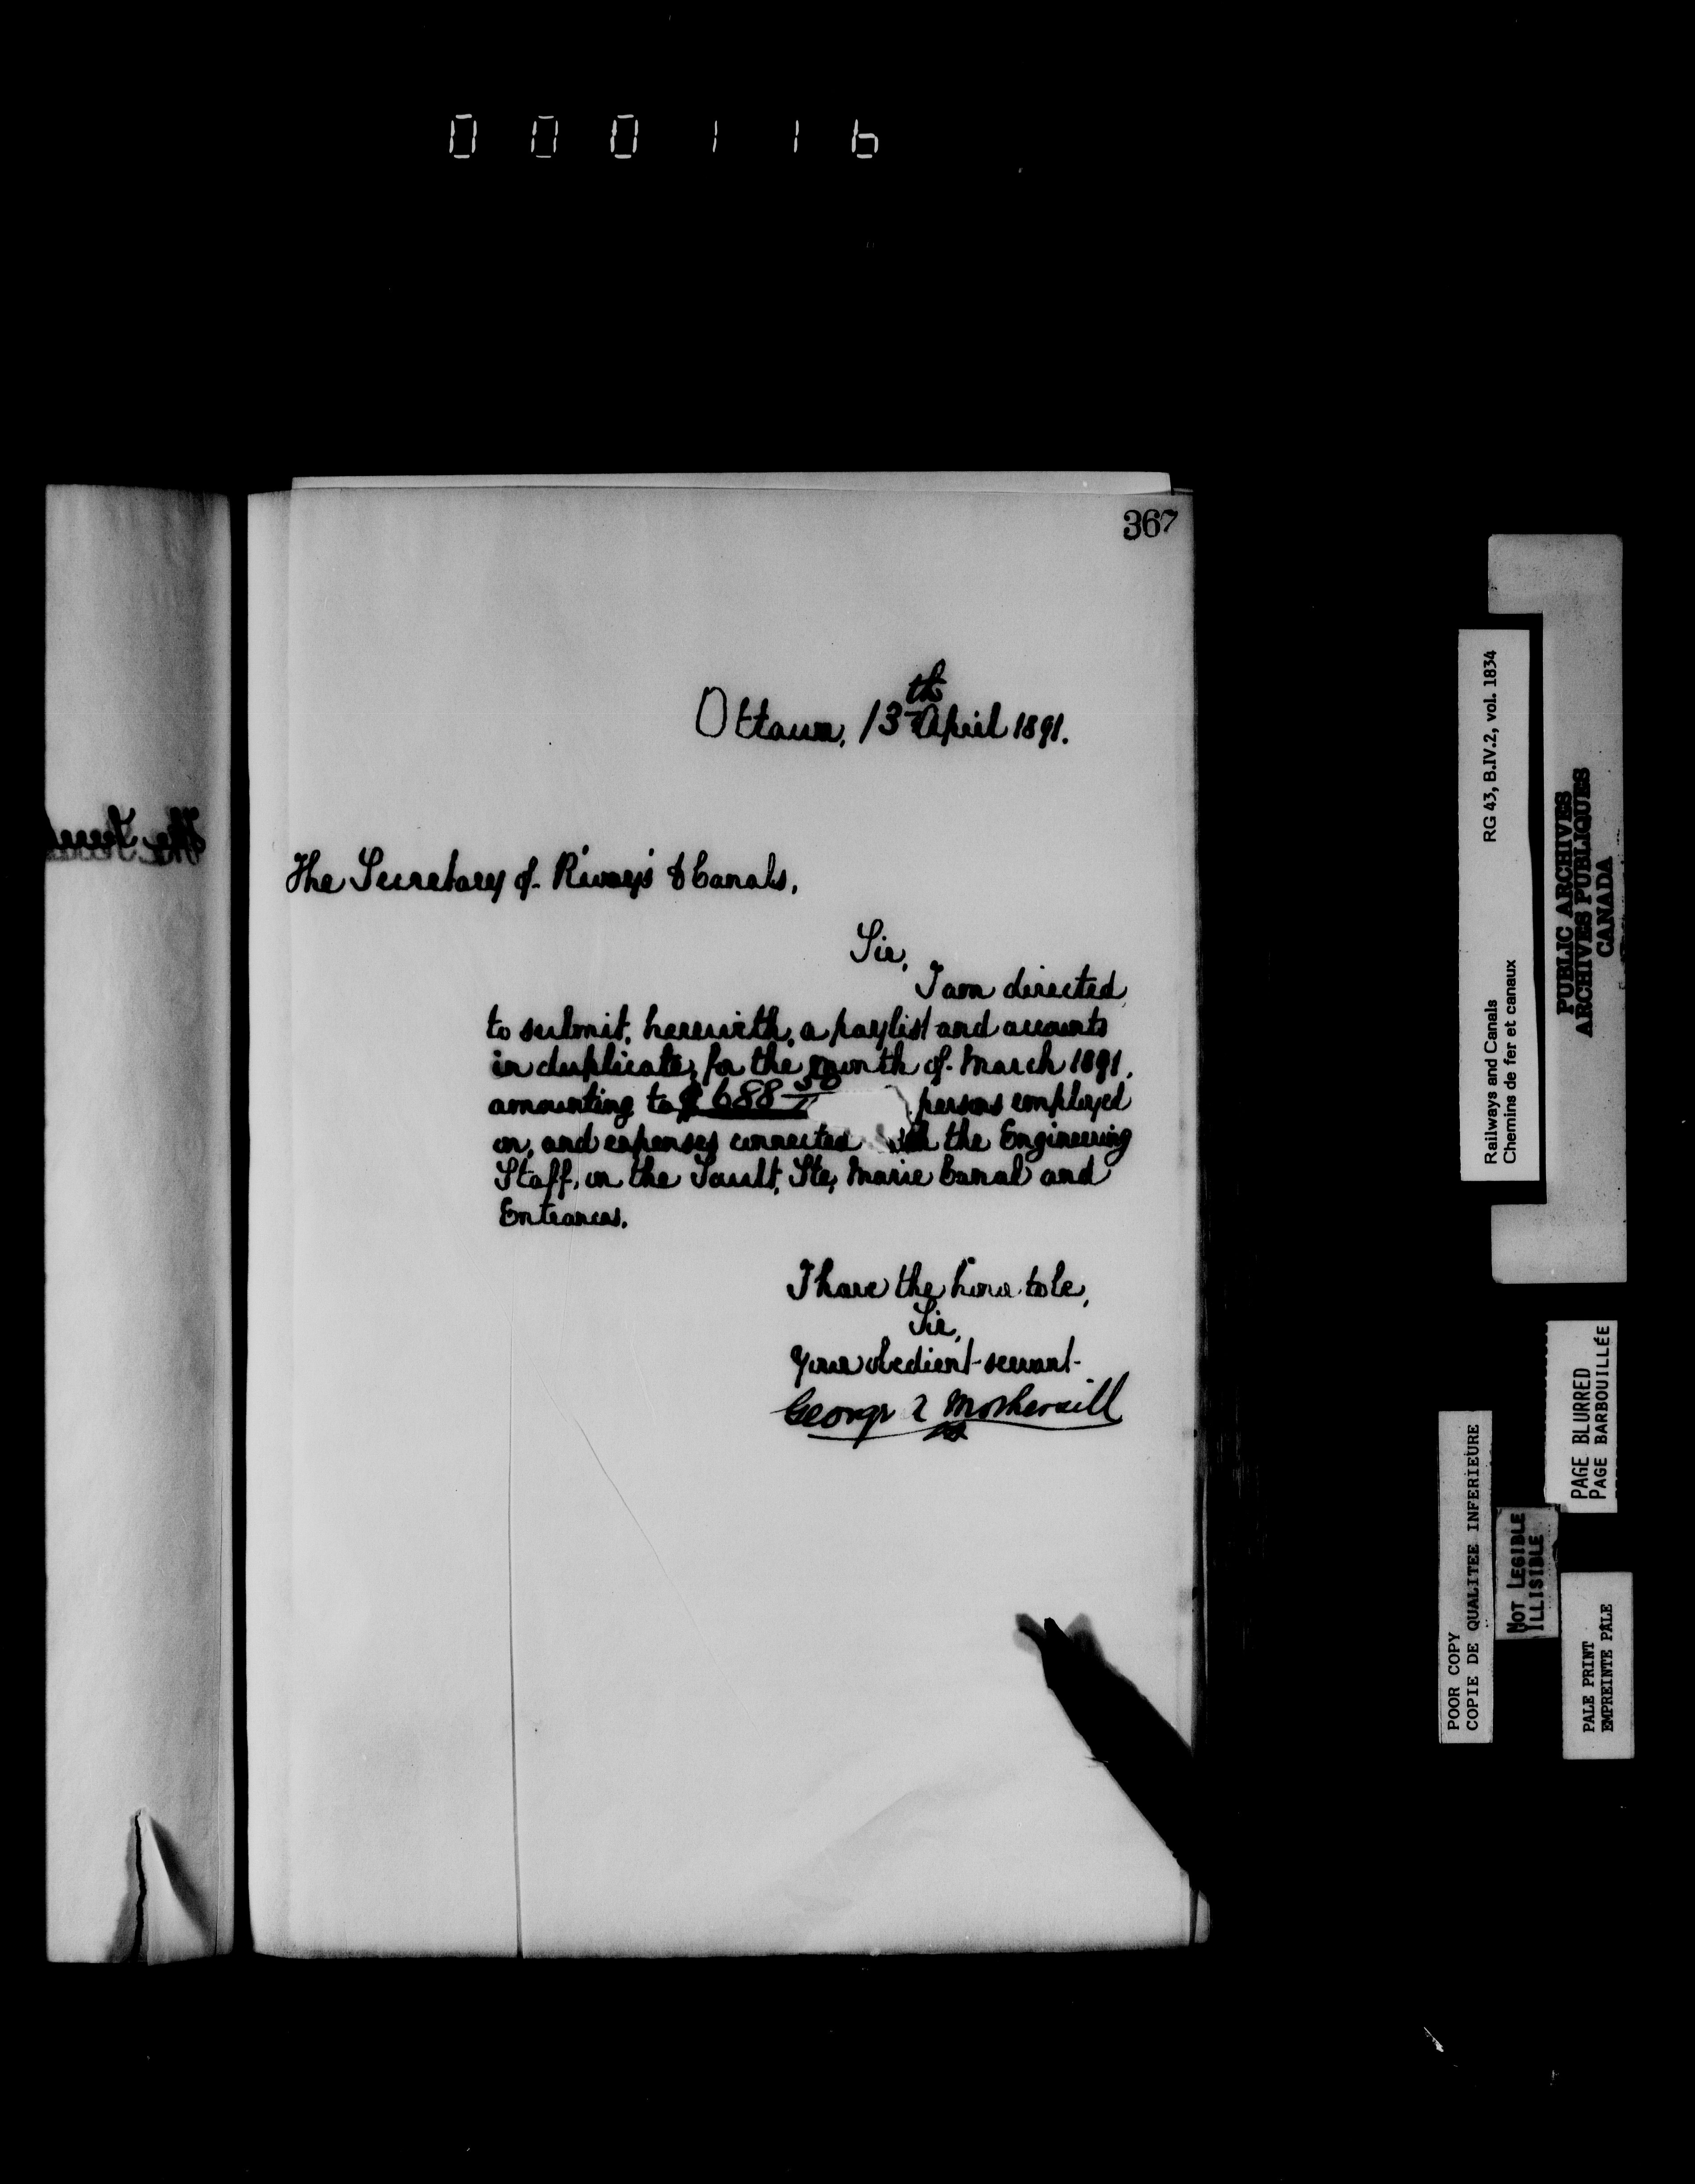 000116
367
Ottawa, 13th April 1891.
The Secretary of R'ways & Canals,
Sir,
I am directed
to submit, herewith, a paylist and accounts
in duplicate, for the month of March 1891,
amounting to $688 50 persons employed
on, and expenses connected with the Engineering
Staff, on the Sault, Ste, Marie Canal and
Entrances.
I have the honor to be,
Sir,
Your obedient servant
George Mothersill
The
Railways and Canals RG 43, B.IV.2, vol. 1834
Chemins de fer et canaux
PUBLIC ARCHIVES
ARCHIVES PUBLIQUES
CANADA
PAGE BLURRED
PAGE BARBOUILLÉE
POOR COPY
COPIE DE QUALITEE INFERIEURE
NOT LEGIBLE
ILLISIBLE
PALE PRINT
EMPREINTE PALE